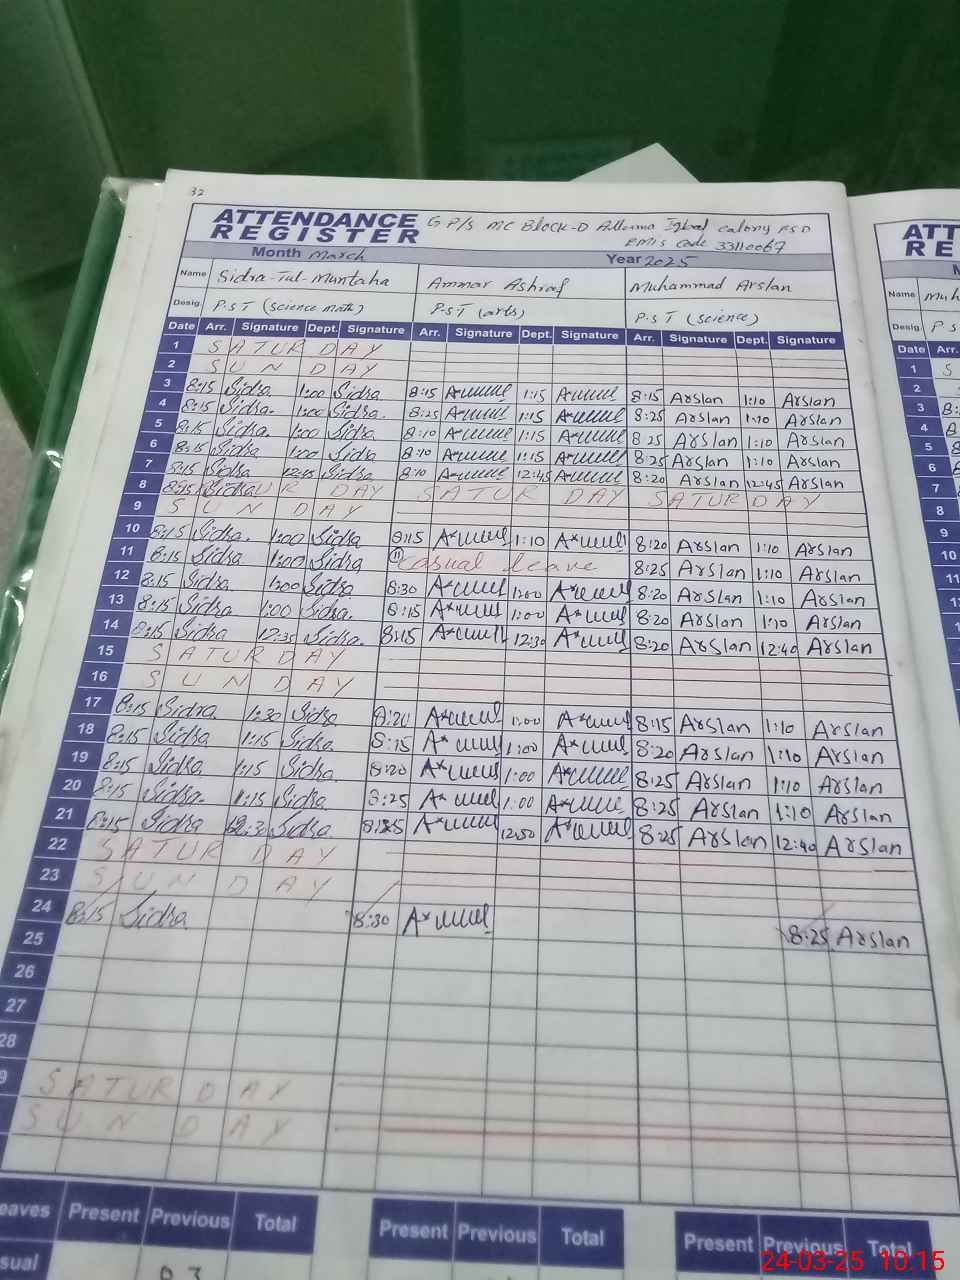 32
ATTENDANCE REGISTER G P/S MC Block-D Allama Iqbal calony FSD
EMIS Code 33110067
Month March Year 2025
Name Sidra-Tul-Muntaha Ammar Ashraf Muhammad Arslan
Desig. P.S.T (science math) P.S.T (arts) P.S.T (science)
Date Arr. Signature Dept. Signature Arr. Signature Dept. Signature Arr. Signature Dept. Signature
1 SATURDAY
2 SUNDAY
3 8:15 Sidra 1:00 Sidra 8:15 1:15 8:15 Arslan 1:10 Arslan
4 8:15 Sidra 1:00 Sidra 8:25 1:15 8:25 Arslan 1:10 Arslan
5 8:15 Sidra 1:00 Sidra 8:10 1:15 8:25 Arslan 1:10 Arslan
6 8:15 Sidra 1:00 Sidra 8:10 1:15 8:25 Arslan 1:10 Arslan
7 8:15 Sidra 12:45 Sidra 8:10 12:45 8:20 Arslan 12:45 Arslan
8 8:15 Sidra UR DAY SATUR DAY SATURDAY
9 SUNDAY
10 8:15 Sidra 1:00 Sidra 8:15 1:10 8:20 Arslan 1:10 Arslan
11 8:15 Sidra 1:00 Sidra Casual leave 8:25 Arslan 1:10 Arslan
12 8:15 Sidra 1:00 Sidra 8:30 1:00 8:20 Arslan 1:10 Arslan
13 8:15 Sidra 1:00 Sidra 8:15 1:00 8:20 Arslan 1:10 Arslan
14 8:15 Sidra 12:35 Sidra 8:15 12:30 8:20 Arslan 12:40 Arslan
15 SATURDAY
16 SUNDAY
17 8:15 Sidra 1:30 Sidra 8:20 1:00 8:15 Arslan 1:10 Arslan
18 8:15 Sidra 1:15 Sidra 8:15 1:00 8:20 Arslan 1:10 Arslan
19 8:15 Sidra 1:15 Sidra 8:20 1:00 8:25 Arslan 1:10 Arslan
20 8:15 Sidra 1:15 Sidra 8:25 1:00 8:25 Arslan 1:10 Arslan
21 8:15 Sidra 12:30 Sidra 12:50 8:25 Arslan 12:40 Arslan
22 SATURDAY
23 SUNDAY
24 8:15 Sidra 8:30 8:25 Arslan
25
26
27
28
9 SATURDAY
SUNDAY
eaves Present Previous Total Present Previous Total Present Previous Total
sual
ATT
RE
Name Muh
Desig. P s
Date Arr.
1 S
2
3 8:
4 8
5 8
6
7
8
9
10
11
12
24-03-25 10:15